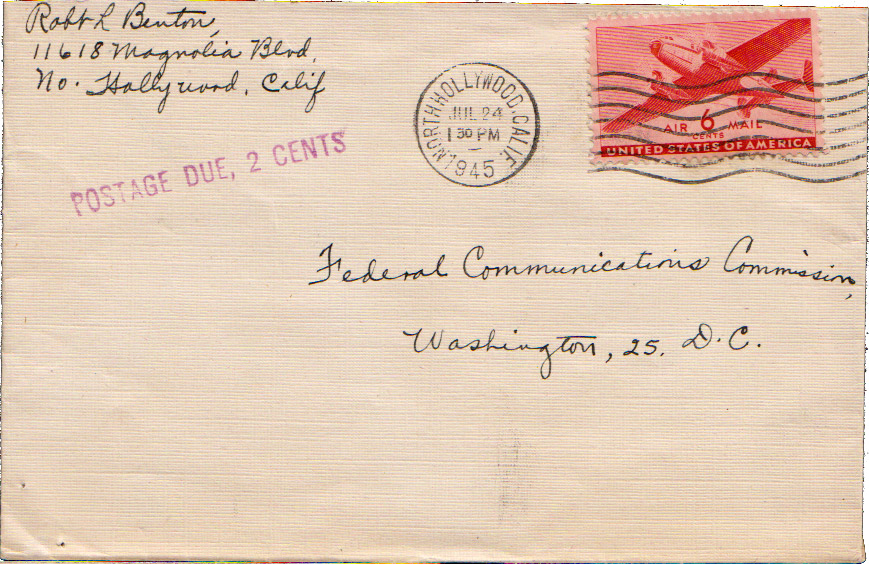 Robt L Benton,
11618 Magnolia Blvd,
No. Hollywood, Calif
POSTAGE DUE, 2 CENTS
NORTH HOLLYWOOD, CALIF.
JUL 24
1 30 PM
1945
AIR 6 MAIL
CENTS
UNITED STATES OF AMERICA
Federal Communications Commission,
Washington, 25. D.C.